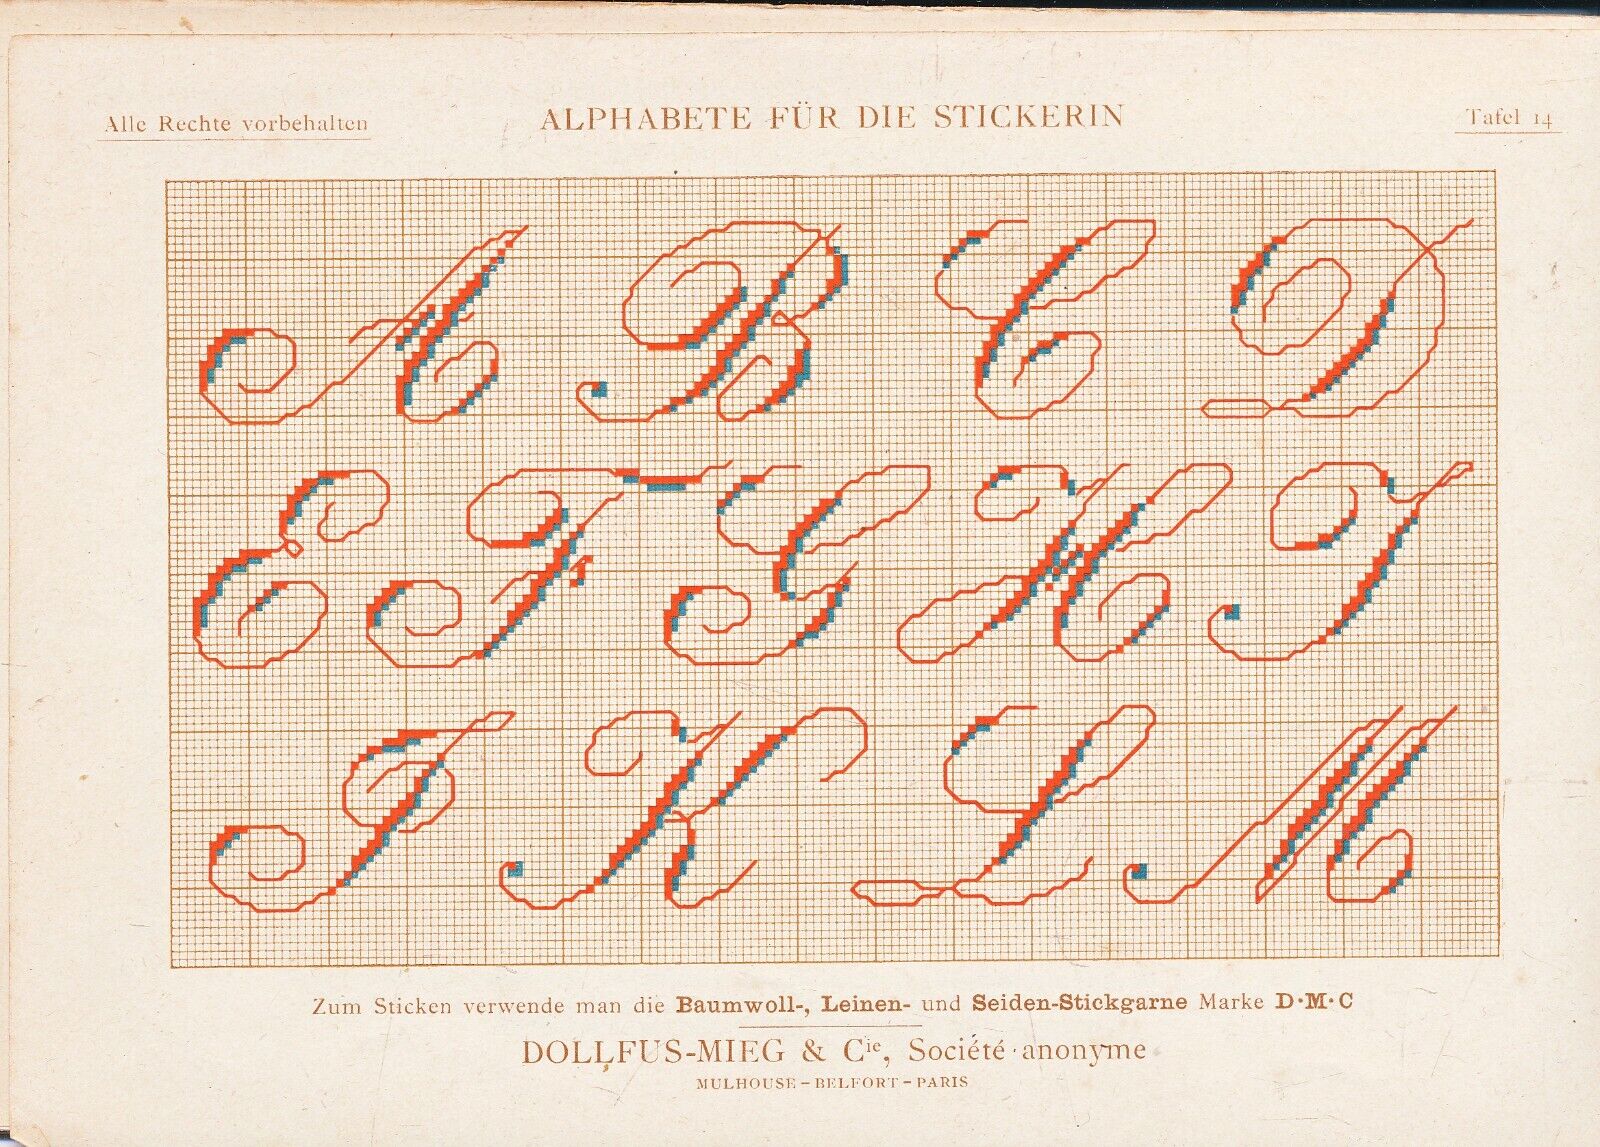 Alle Rechte vorbehalten
ALPHABETE FÜR DIE STICKERIN
Tafel 14
A B C D
E F G H I
J K L M
Zum Sticken verwende man die Baumwoll-, Leinen- und Seiden-Stickgarne Marke D·M·C
DOLLFUS-MIEG & Cie, Société anonyme
MULHOUSE - BELFORT - PARIS